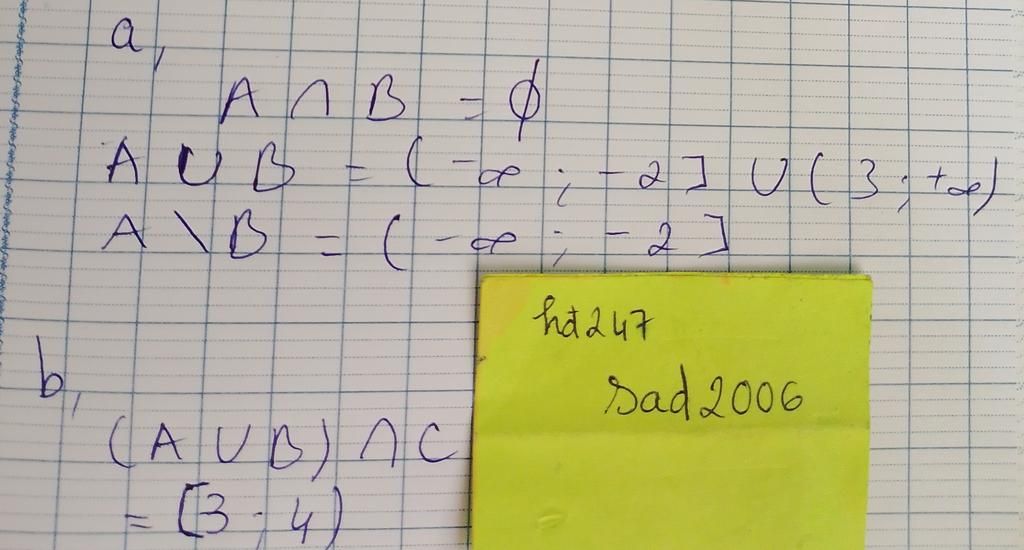 a,
A ∩ B = ∅
A ∪ B = (-∞ ; -2] ∪ (3 ; +∞)
A \ B = (-∞ ; -2]
hđ247
sad2006
b,
(A ∪ B) ∩ C
= [3 ; 4)